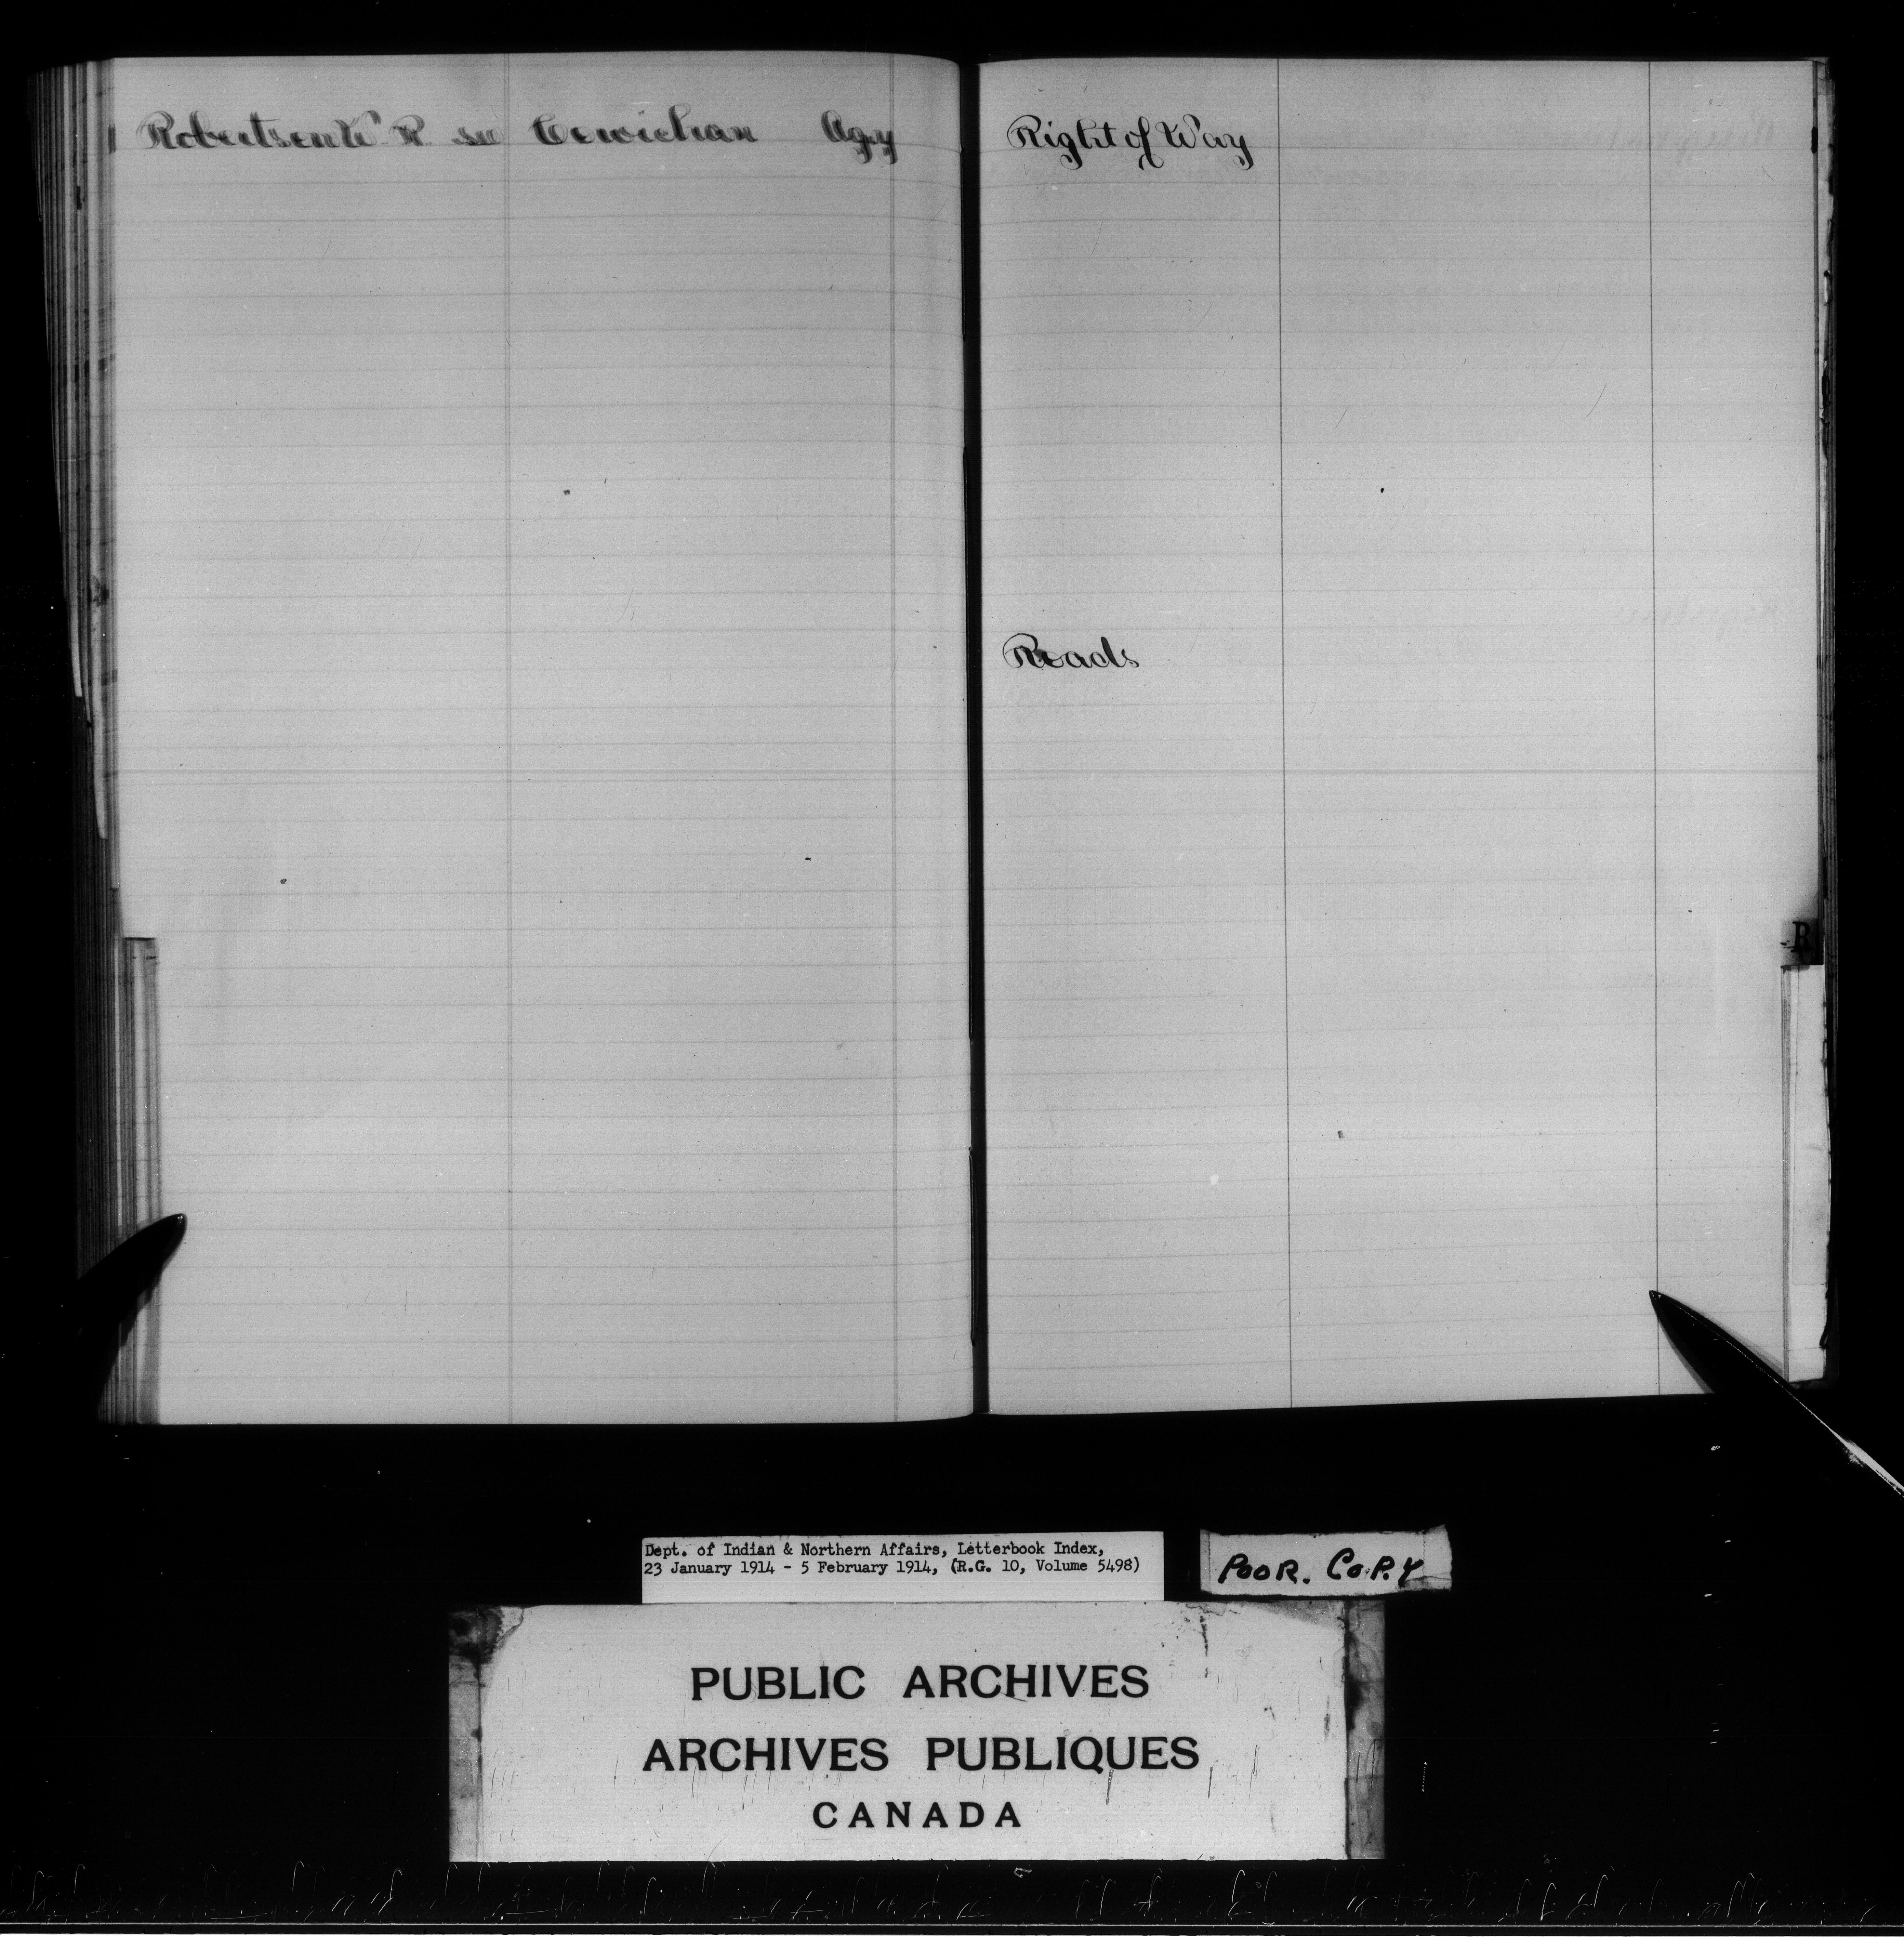 Robertson W. R. see Cowichan Agy
Right of Way
Roads
R
Dept. of Indian & Northern Affairs, Letterbook Index,
23 January 1914 - 5 February 1914, (R.G. 10, Volume 5498)
POOR. COPY
PUBLIC ARCHIVES
ARCHIVES PUBLIQUES
CANADA